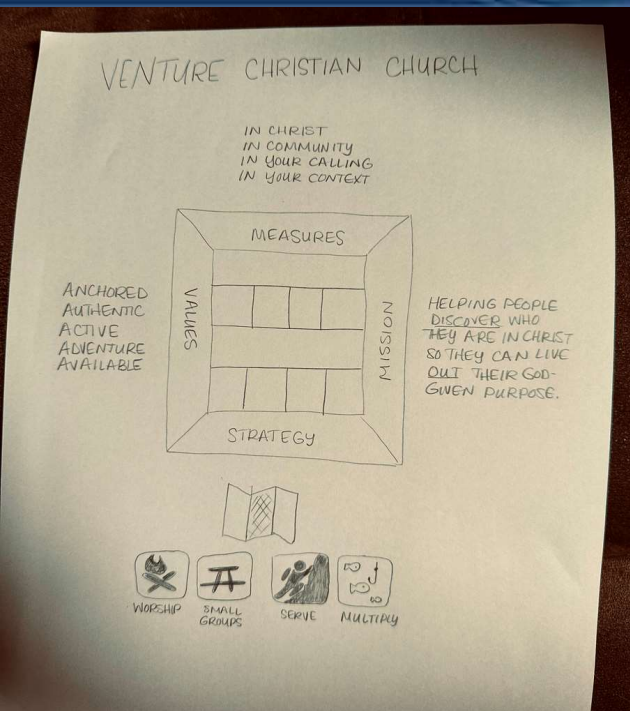 VENTURE CHRISTIAN CHURCH
IN CHRIST
IN COMMUNITY
IN YOUR CALLING
IN YOUR CONTEXT
MEASURES
ANCHORED
AUTHENTIC
ACTIVE
ADVENTURE
AVAILABLE
VALUES
MISSION
HELPING PEOPLE
DISCOVER WHO
THEY ARE IN CHRIST
SO THEY CAN LIVE
OUT THEIR GOD-
GIVEN PURPOSE.
STRATEGY
WORSHIP
SMALL
GROUPS
SERVE
MULTIPLY